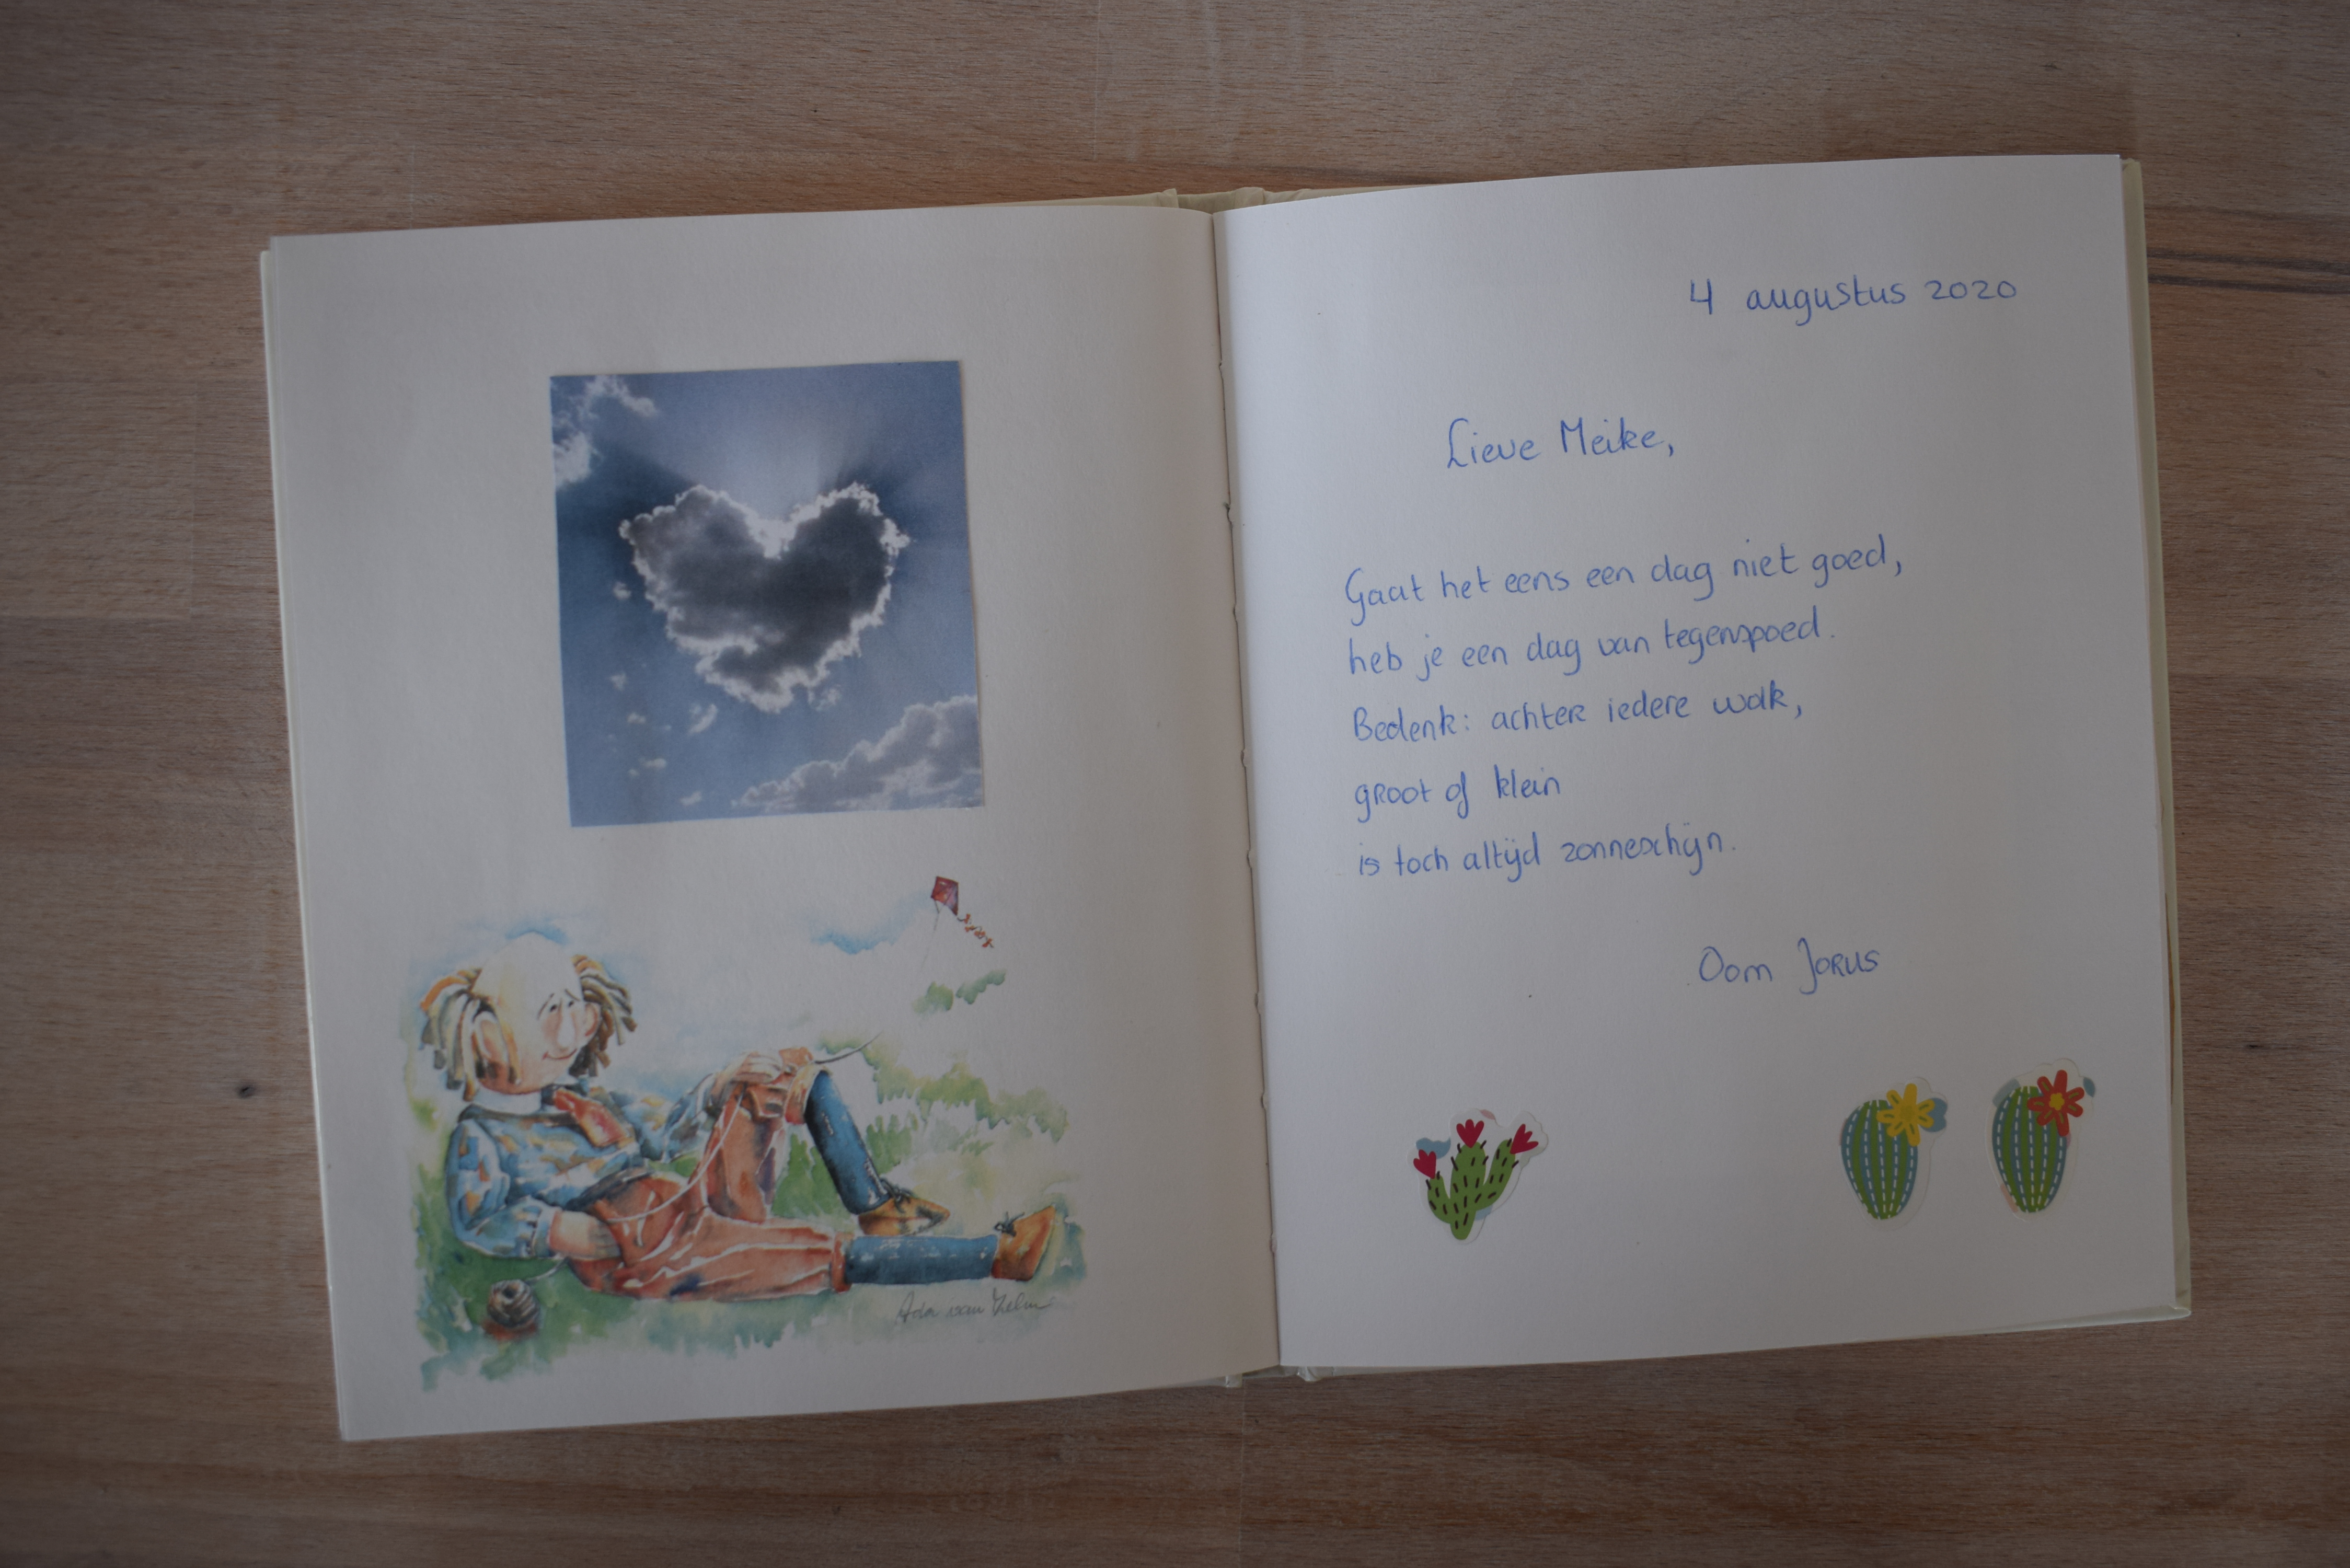 4 augustus 2020
Lieve Meike,
Gaat het eens een dag niet goed,
heb je een dag van tegenspoed.
Bedenk: achter iedere wolk,
groot of klein
is toch altijd zonneschijn.
Oom Jorus
Ada van